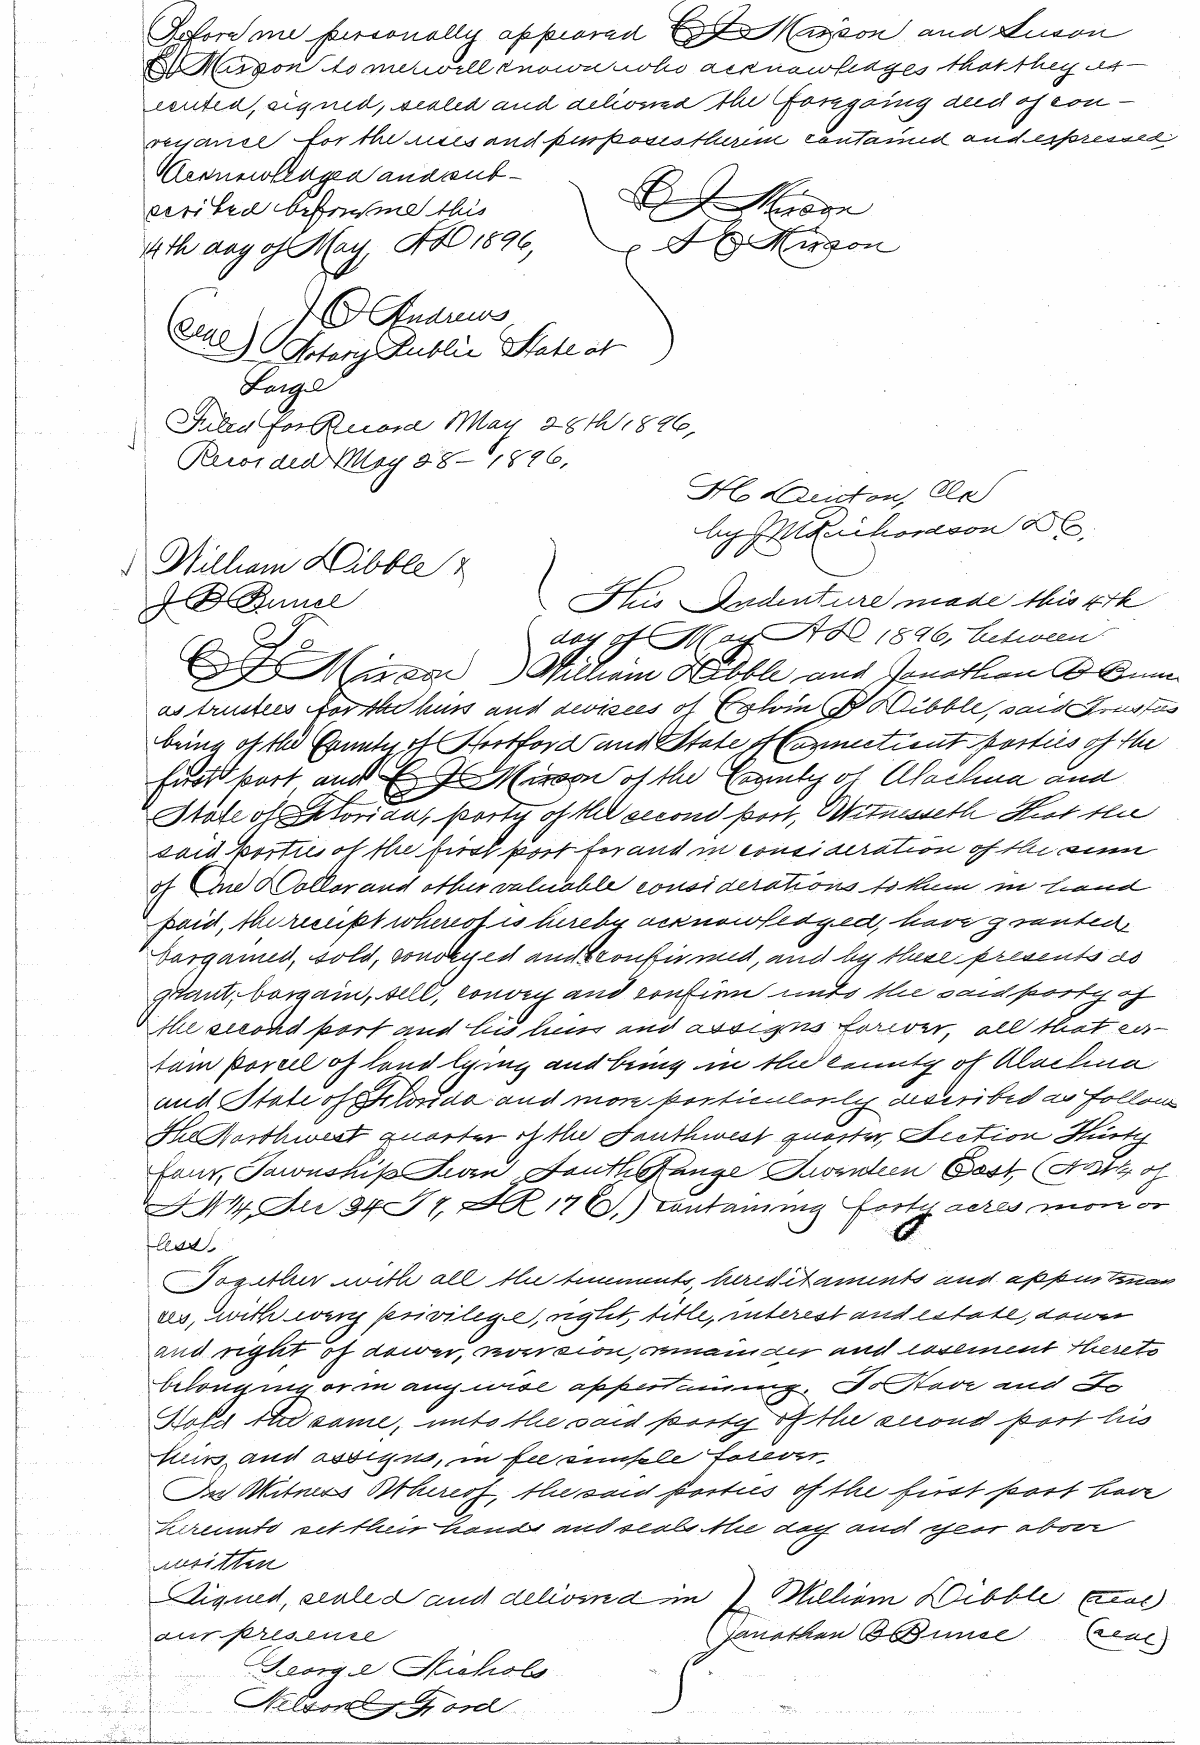 Before me personally appeared C J Mixson and Susan
C Mixson to me well known who acknowledges that they ex-
ecuted, signed, sealed and delivered the foregoing deed of con-
veyance for the uses and purposes therein contained and expressed,
Acknowledged and sub-
scribed before me this
4th day of May, AD 1896,
C J Mixson
S C Mixson
J O Andrews
(seal) Notary Public State at
Large
Filed for Record May 28th 1896,
Recorded May 28- 1896,
H C Denton, Clk
by J M Richardson D C,
William Dibble &
J B Bunce
To
C J Mixson
This Indenture made this 4th
day of May AD 1896, between
William Dibble and Jonathan B Bunce
as trustees for the heirs and devisees of Calvin B Dibble, said Trustees
being of the County of Hartford and State of Connecticut parties of the
first part, and C J Mixson of the County of Alachua and
State of Florida, party of the second part, Witnesseth That the
said parties of the first part for and in consideration of the sum
of One Dollar and other valuable considerations to them in hand
paid, the receipt whereof is hereby acknowledged, have granted,
bargained, sold, conveyed and confirmed, and by these presents do
grant, bargain, sell, convey and confirm unto the said party of
the second part and his heirs and assigns forever, all that cer-
tain parcel of land lying and being in the county of Alachua
and State of Florida and more particularly described as follows
The Northwest quarter of the Southwest quarter, Section Thirty
four, Township Seven South Range Seventeen East, (NW¼ of
SW¼, Sec 34 T 7, S R 17 E,) containing forty acres more or
less.
Together with all the tenements, hereditaments and appurtenan
ces, with every privilege, right, title, interest and estate, dower
and right of dower, reversion, remainder and easement thereto
belonging or in any wise appertaining. To Have and To
Hold the same, unto the said party of the second part his
heirs and assigns, in fee simple forever.
In Witness Whereof, the said parties of the first part have
hereunto set their hands and seals the day and year above
written
Signed, sealed and delivered in
our presense
William Dibble (seal)
Jonathan B Bunce (seal)
George Nichols
Nelson G Ford